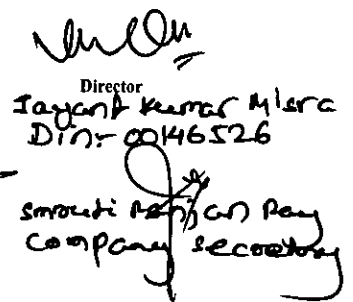 Director
Jayant Kumar Misra
Din:- 00146526
Smruti Ranjan Ray
Company Secretary